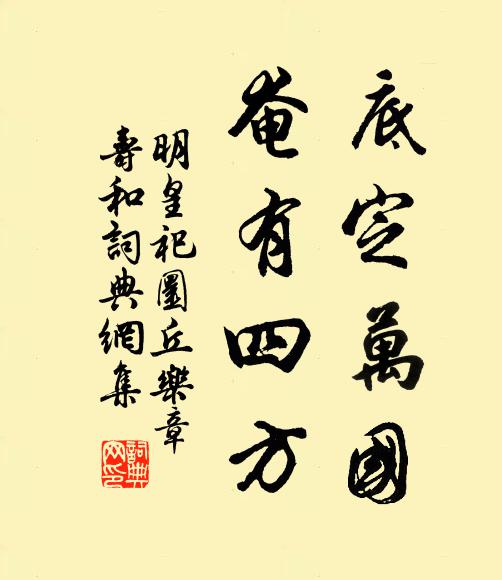 底定萬國
奄有四方
明皇祀圜丘樂章
壽和詞典網集
詞典
网印